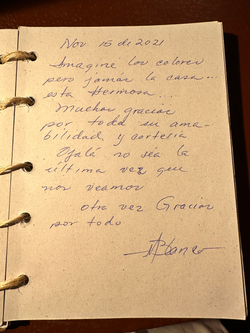 Nov 15 de 2021
Imagine los colores
pero jamás la casa...
esta Hermosa...
Muchas gracias
por toda su ama-
bilidad y cortesia
Ojalá no séa la
última vez que
nos veamos
otra vez Gracias
por todo